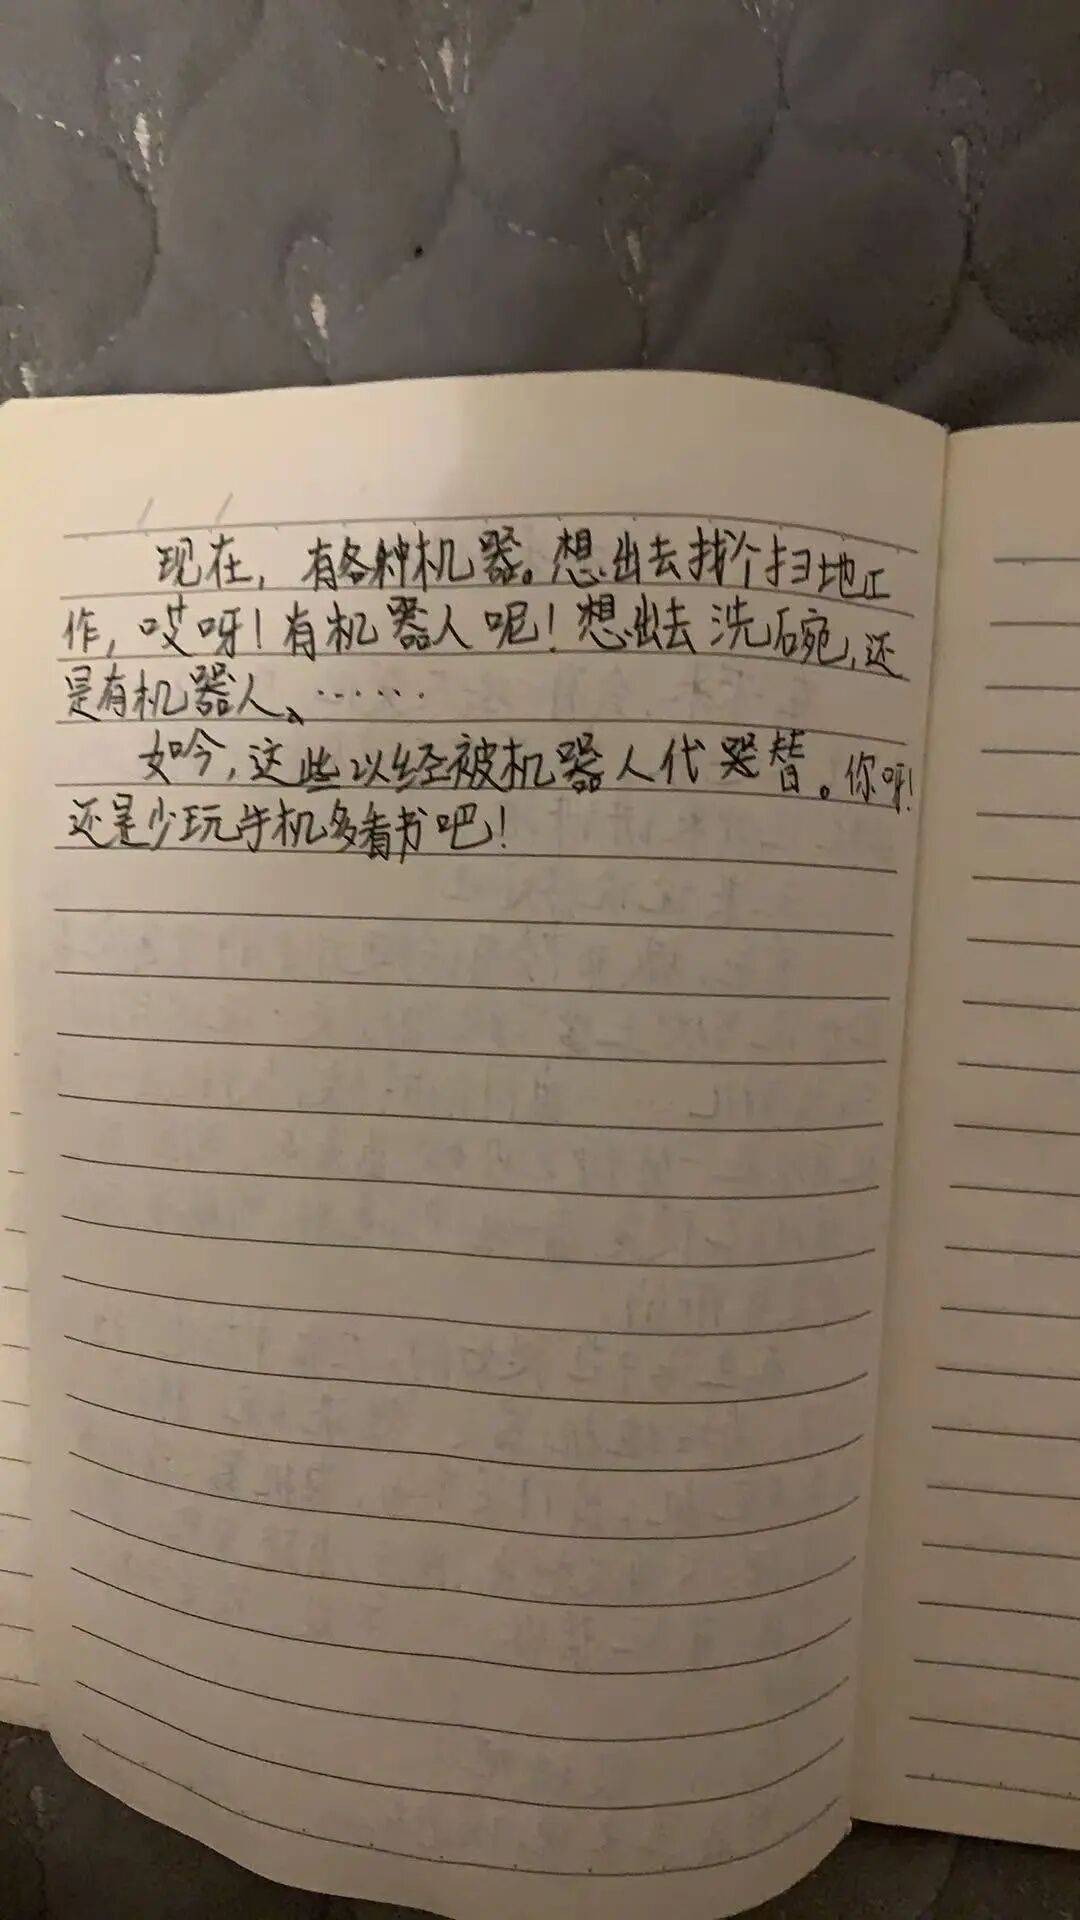 现在，有各种机器。想出去找个扫地工
作，哎呀！有机器人呢！想出去洗碗，还
是有机器人、……
如今，这些以经被机器人代替。你呀！
还是少玩手机多看书吧！